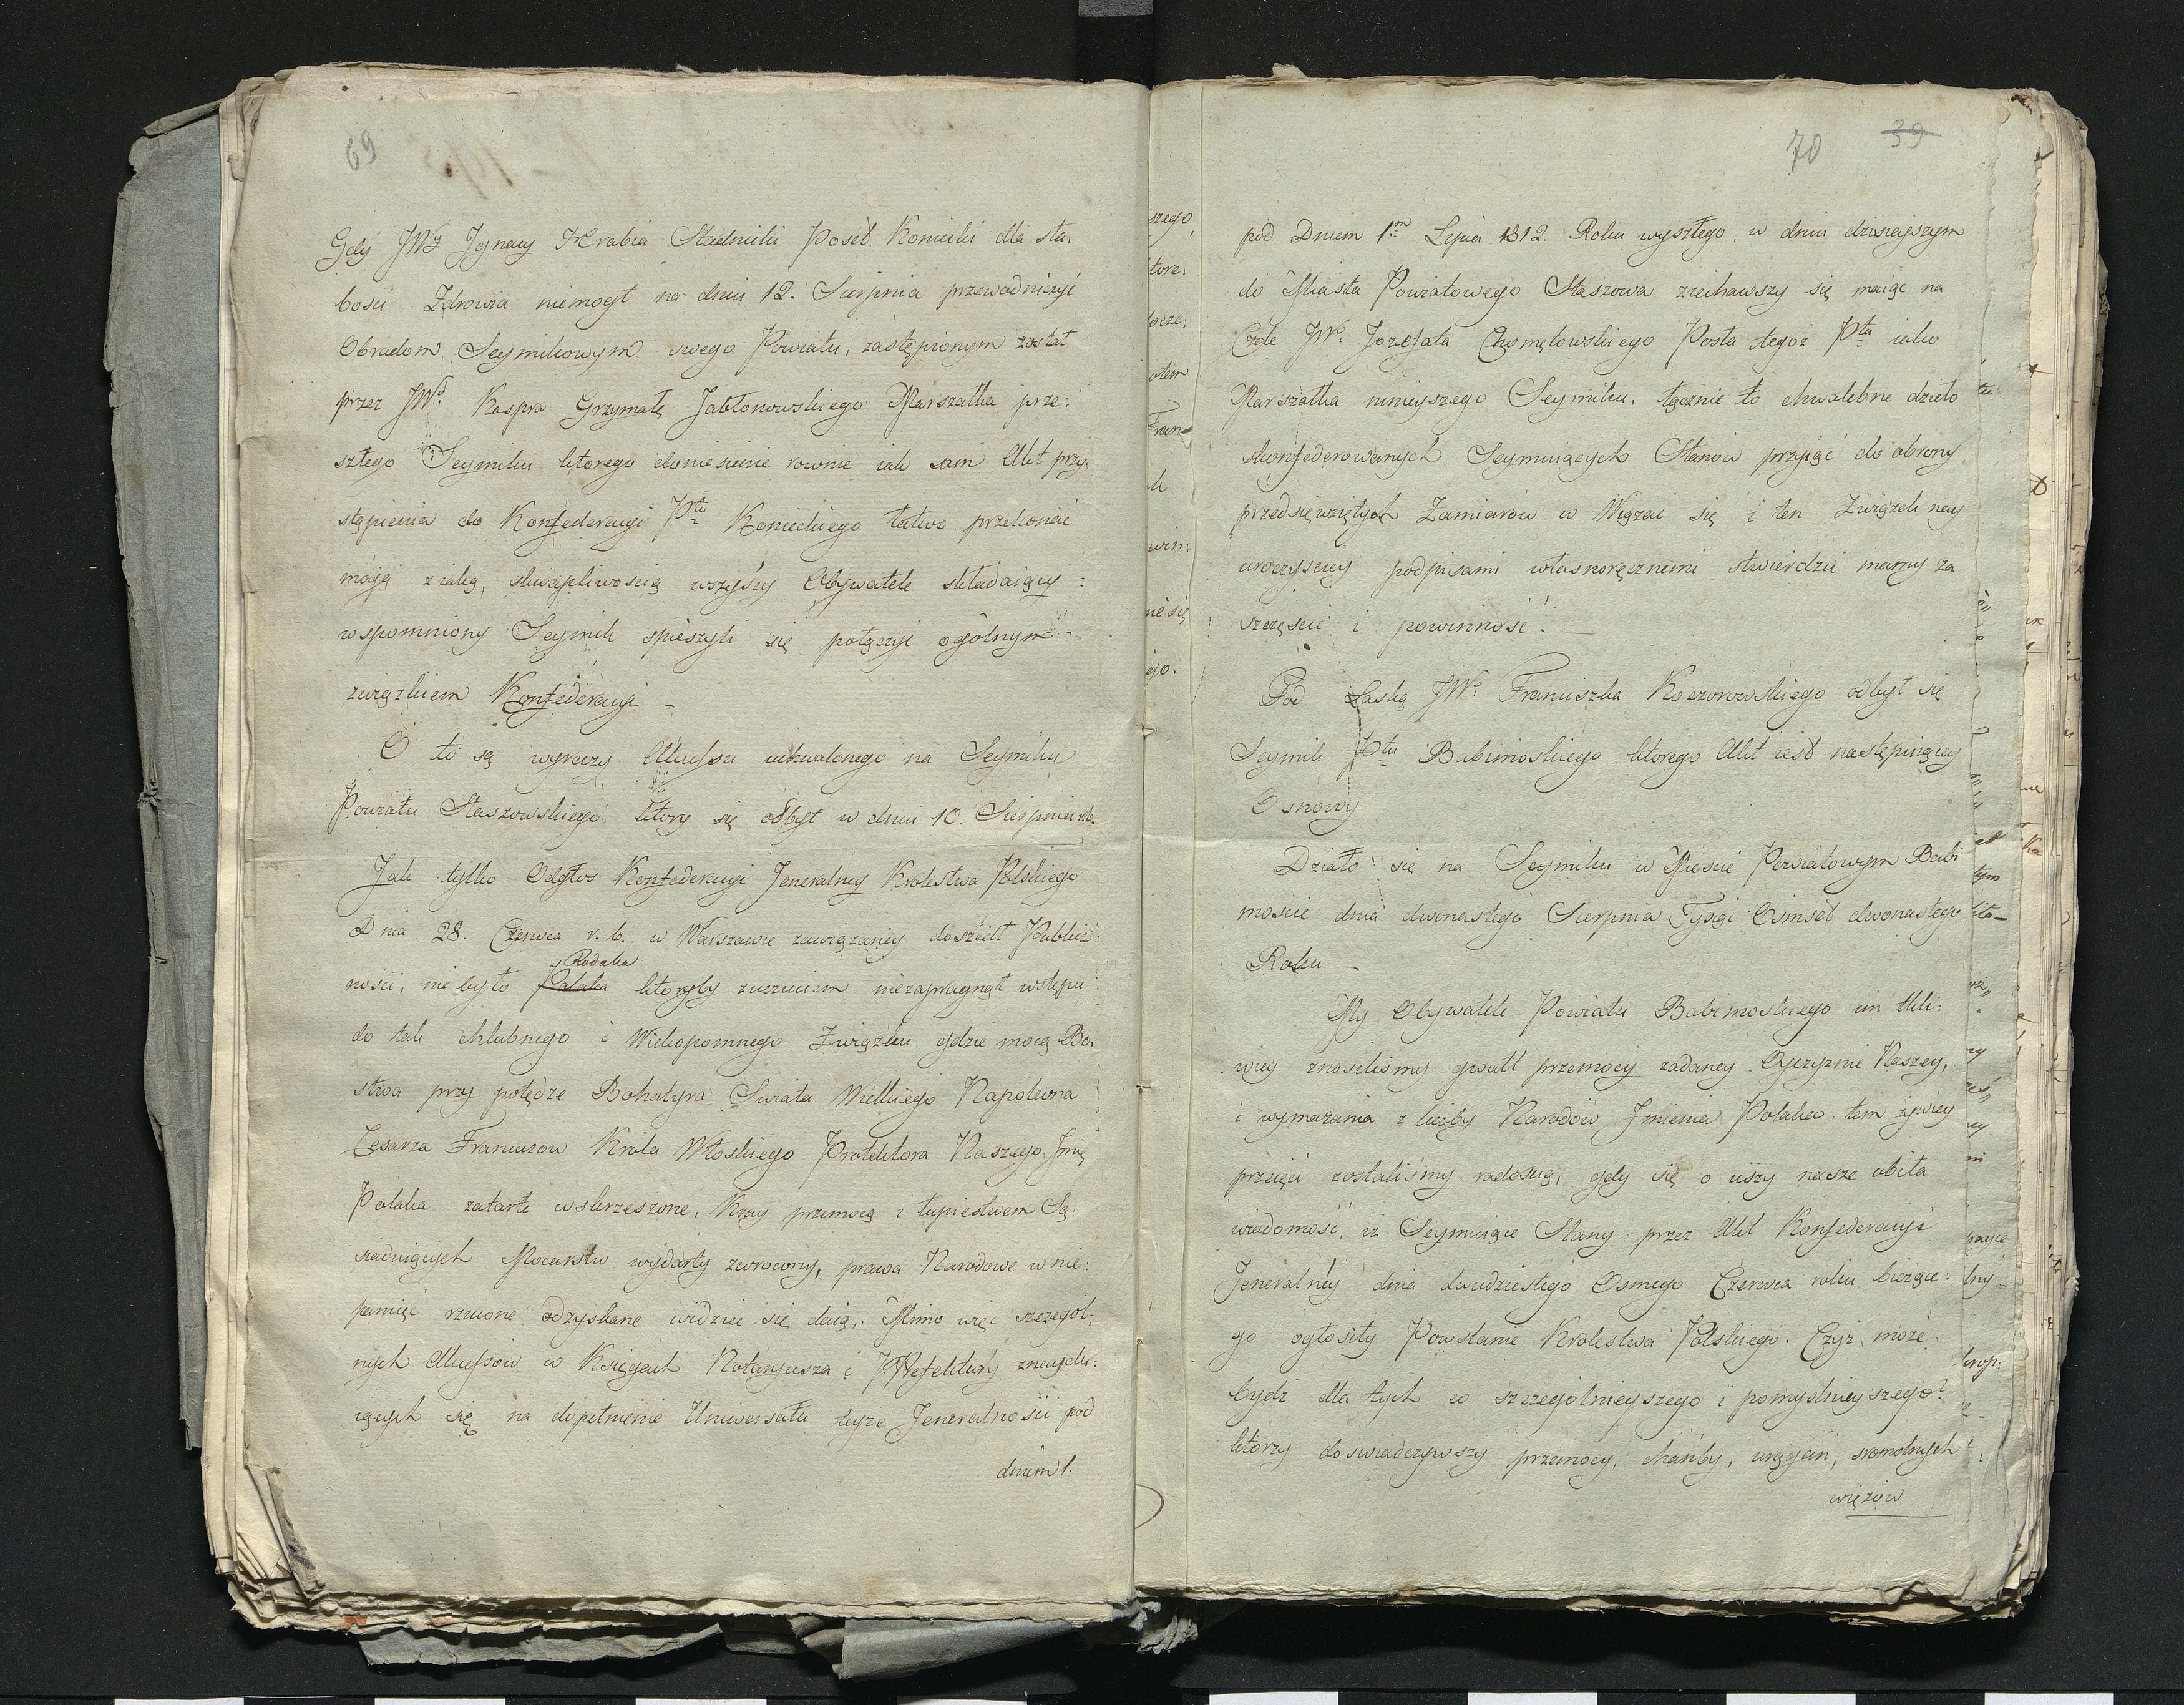 69
Gdy JWy Jgnacy Hrabia Stadnicki Poseł Koniecki dla sła,
bości Zdrowia niemogł na dniu 12. Sierpnia przewodniczyć
Obradom Seymikowym swego Powiatu, zastępionym został
przez JWo. Kaspra Grzymałę Jabłonowskiego Marszałka prze:
szłego Seymiku ktorego doniesienie rownie iak sam Akt przy,
stąpienia do Konfederacyi Ptu Konieckiego łatwo przekonać
mogą z iaką, skwapliwością wszyscy Obywatele składaiący:
wspomniony Seymik spieszyli się połączyć ogólnym
związkiem Konfederacyi –
O to są wyrazy Akcessu uchwalonego na Seymiku
Powiatu Staszowskiego ktory się odbył w dniu 10. Sierpnia r.b.
Jak tylko Odgłos Konfederacyi Jeneralney Krolestwa Polskiego
Dnia 28. Czerwca r. b. w Warszawie zawiązaney doszedł Publicz:
Rodaka
ności, nie było Polaka ktoryby z uczuciem niezapragnął wstępu
do tak chlubnego i Wiekopomnego Związku, gdzie mocą Bo,
stwa przy potędze Bohatyra Swiata Wielkiego Napoleona
Cesarza Francuzow Króla Włoskiego Protektora Naszego Jmię
Polaka zatarte wskrzeszone, Kray przemocą i łupiestwem Są:
siaduiących Mocarstw wydarty zwrocony, prawa Narodowe w nie:
pamięć rzucone odzyskane widzieć się daią. Mimo więc szczegól,
nych Akcessow w Księgach Notaryusza i PPrefektury znaydu:
iących się na dopełnienie Uniwersału teyże Jeneralności pod
dniem 1.
70 39
pod Dniem 1m Lipca 1812. Roku wyszłego, w dniu dzisieyszym
do Miasta Powiatowego Staszowa ziechawszy się maiąc na
Czele JWo. Jozefata Chomętowskiego Posła tegoż Ptu iako
Marszałka ninieyszego Seymiku, łącznie to chwalebne dzieło
skonfederowanych Seymuiących Stanow przyiąć do obrony
przedsięwziętych Zamiarów w Wiązać się i ten Związek nay
uroczyściey podpisami własnoręcznemi stwierdzić mamy za
szczęście i powinność. –
Pod Laską JWo. Franciszka Koczorowskiego odbył się
Seymik Ptu Babimoskiego ktorego Akt iest następuiącey
Osnowy
Działo się na Seymiku w Mieście Powiatowym Babi
moście dnia dwonastego Sierpnia Tysiąc Osmset dwonastego
Roku –
My Obywatele Powiatu Babimoskiego im tkli:
wiey znosiliśmy gwałt przemocy zadaney Oyczyznie Naszey,
i wymazania z liczby Narodów Jmienia Polaka tem żywiey
przeięci zostaliśmy radością, gdy się o uszy nasze obiła
wiadomość, iż Seymuiące Stany przez Akt Konfederacyi
Jeneralney dnia dwudziestego Osmego Czerwca roku bieżące:
go ogłosiły Powstanie Krolestwa Polskiego. Czyż może
bydź dla tych co szczególnieyszego i pomyślnieyszego?
ktorzy doświadczywszy przemocy, chańby, urągań, sromotnych
więzow